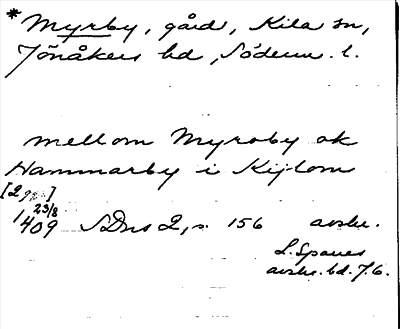 * Myrby, gård, Kila sn,
Jönåkers hd, Söderm. l.
mellom Myroby ok
Hammarby i Kijlom
[2 ggr]
23/8
1409 SDns 2, s. 156 avskr.
L. Spanes
avskr. bd. 76.